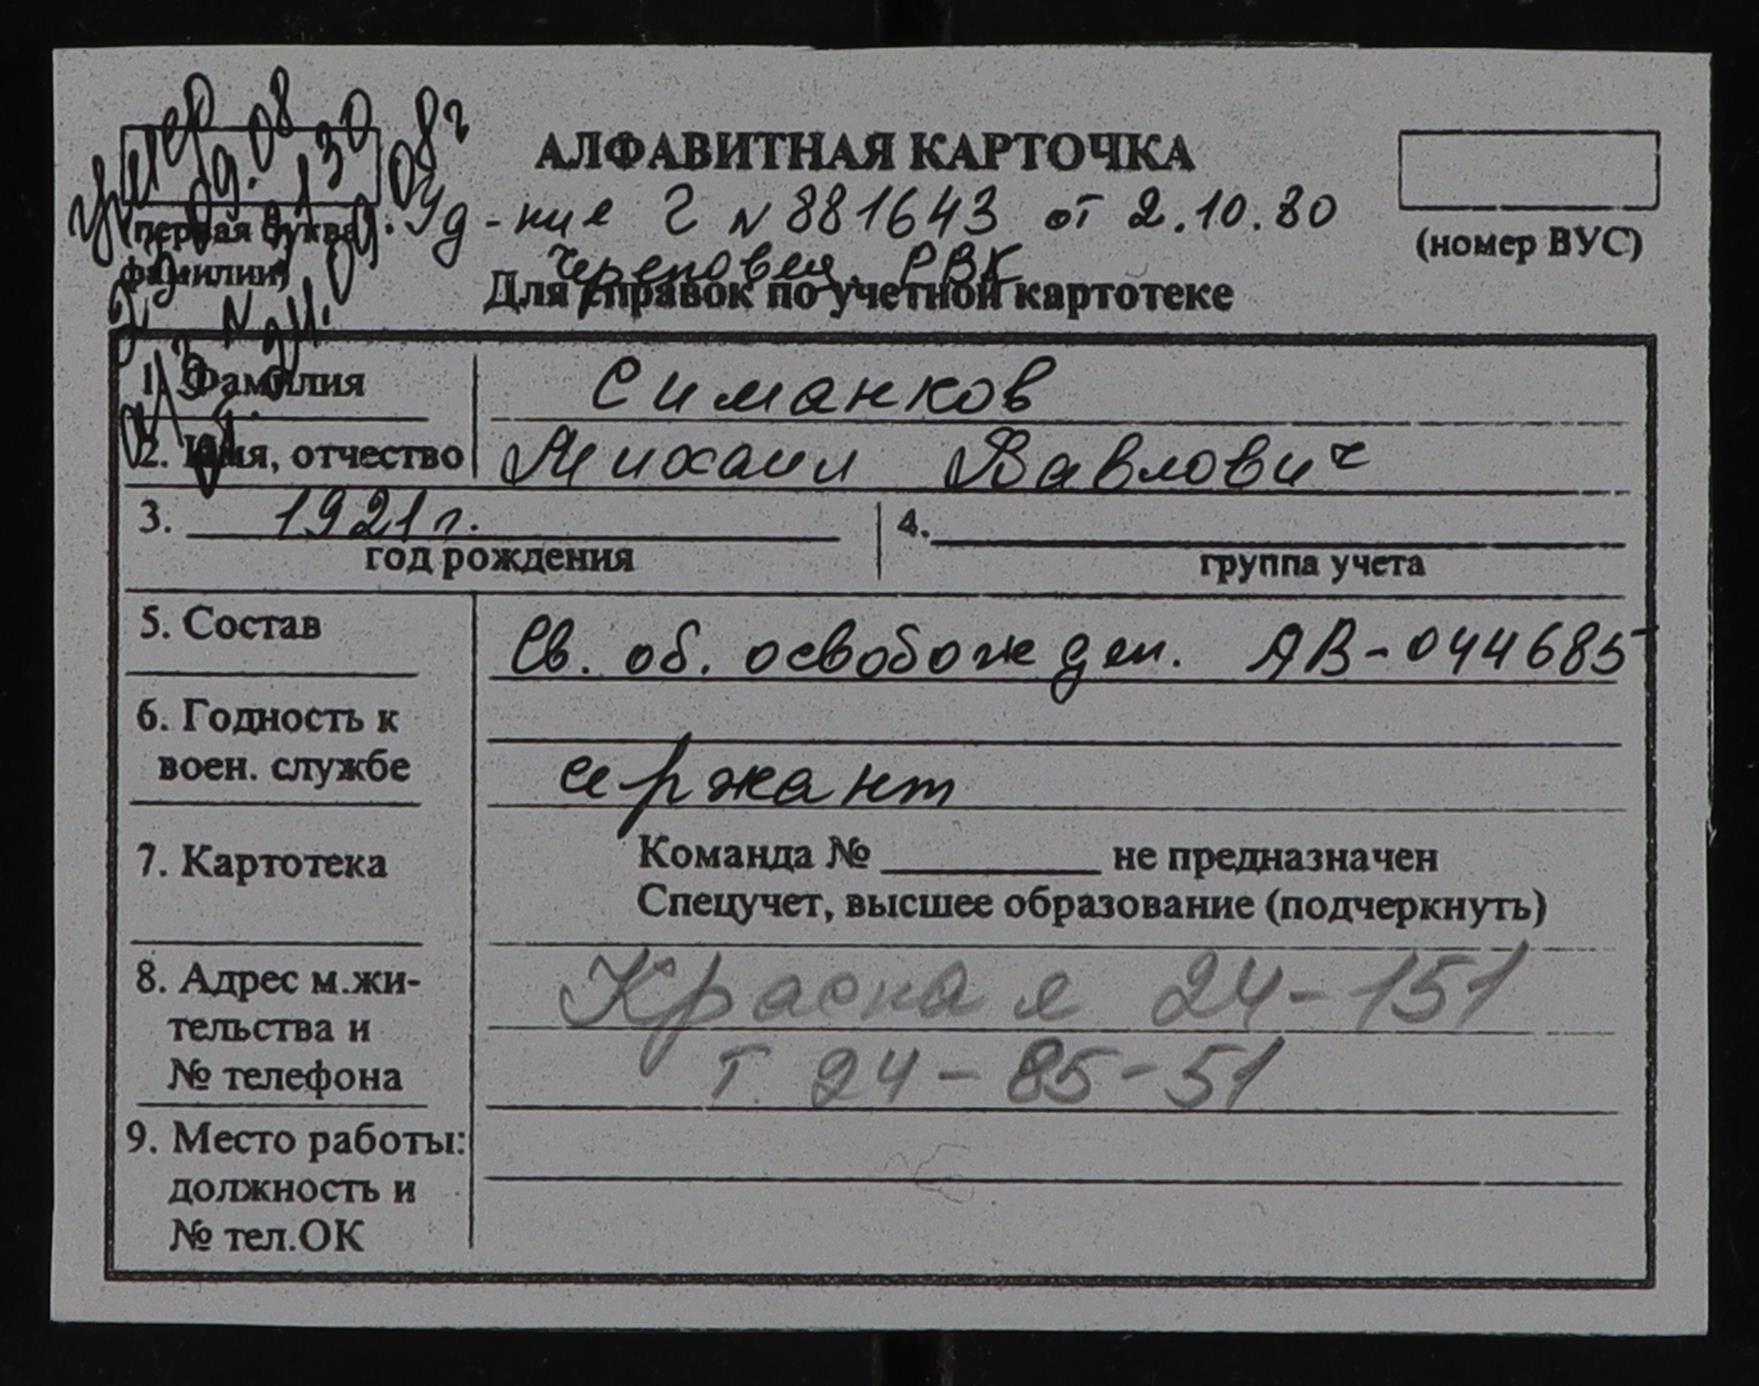 умер
08
АЛФАВИТНАЯ КАРТОЧКА
Уд-ние Г N 881643 от 2.10.80
Череповец. РВК
(первая буква
фамилии)
(номер ВУС)
Для справок по учетной картотеке
1. Фамилия Симанков
2. Имя, отчество Михаил Павлович
3. 1921 г.
год рождения
4.
группа учета
5. Состав Св. об. освобожден. АВ-044685
6. Годность к
воен. службе сержант
7. Картотека Команда № не предназначен
Спецучет, высшее образование (подчеркнуть)
8. Адрес м.жи- Красная 24-151
тельства и
№ телефона т. 24-85-51
9. Место работы:
должность и
№ тел.ОК